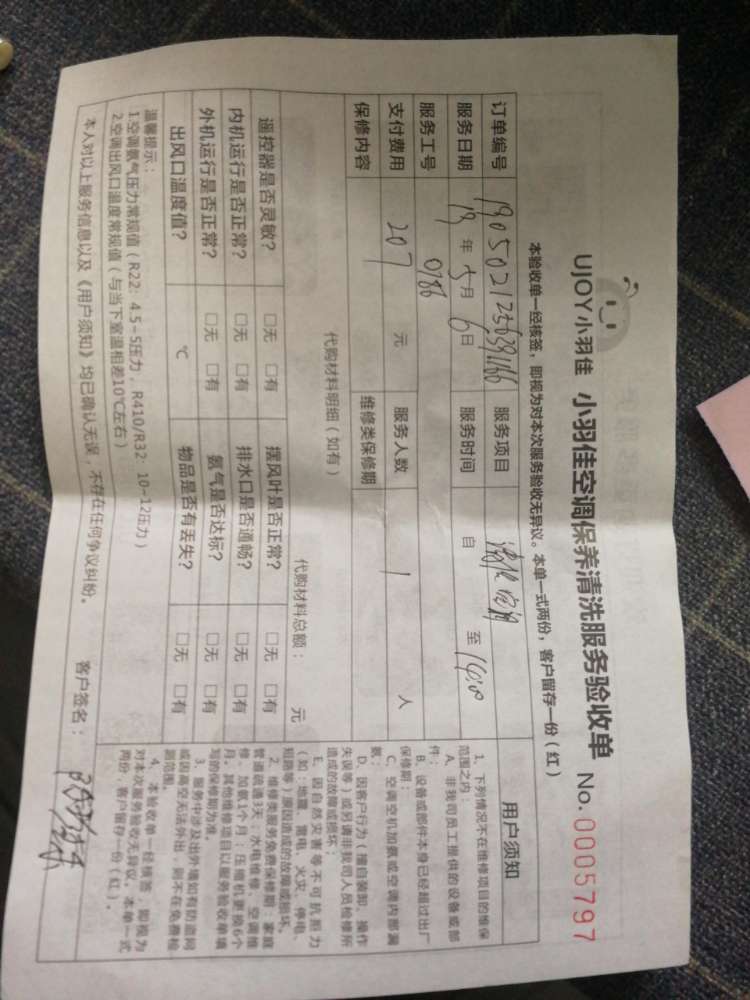 UJOY小羽佳 小羽佳空调保养清洗服务验收单 No.0005797
本验收单一经核签，即视为对本次服务验收无异议。本单一式两份，客户留存一份（红）
订单编号
服务项目
服务日期 19年5月6日 服务时间 自 至 14:00
服务工号 0186
支付费用 207 元 服务人数 1 人
保修内容 维修类保修期
代购材料明细（如有） 代购材料总额： 元
遥控器是否灵敏？ □无 □有 摆风叶是否正常？ □无 □有
内机运行是否正常？ □无 □有 排水口是否通畅？ □无 □有
外机运行是否正常？ □无 □有 氨气是否达标？ □无 □有
出风口温度值？ ℃ 物品是否有丢失？ □无 □有
温馨提示：
1.空调氨气压力常规值（R22：4.5-5压力，R410/R32：10-12压力）
2.空调出风口温度常规值（与当下室温相差10℃左右）
本人对以上服务信息以及《用户须知》均已确认无误，不存在任何争议纠纷。 客户签名：
用户须知
1、下列情况不在维修项目的维保
范围之内：
A、非我司员工提供的设备或部
件；
B、设备或部件本身已经超过出厂
保修期；
C、空调空机加氨或空调内部漏
氨；
D、因客户行为（擅自装卸、操作
失误等）或另请非我司人员检修所
造成的故障或损坏；
E、因自然灾害等不可抗拒力
（如：地震、雷电、火灾、停电、
短路等）原因造成的故障或损坏。
2、维修类服务免费保修期：家庭
管道疏通3天；水电维修、空调维
修、加氨1个月；压缩机更换6个
月。其他维修项目以服务验收单填
写的保修期为准。
3、服务中涉及出外墙如有防盗网
或因高空无法外出，则不在免费检
测范围。
4、本验收单一经核签，即视为
对本次服务验收无异议。本单一式
两份，客户留存一份（红）。